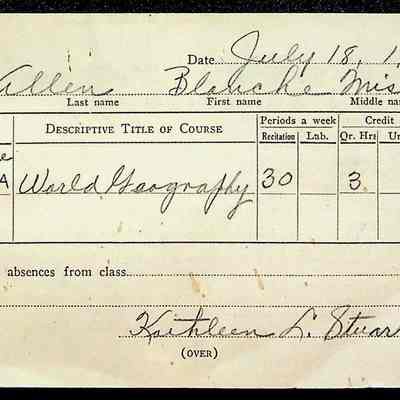 Date July 18, 1
Allen Blanche Mis
Last name First name Middle nam
DESCRIPTIVE TITLE OF COURSE Periods a week Credit
Recitation Lab. Qr. Hrs Un
A World Geography 30 3
absences from class
Kathleen L. Stuar
(OVER)